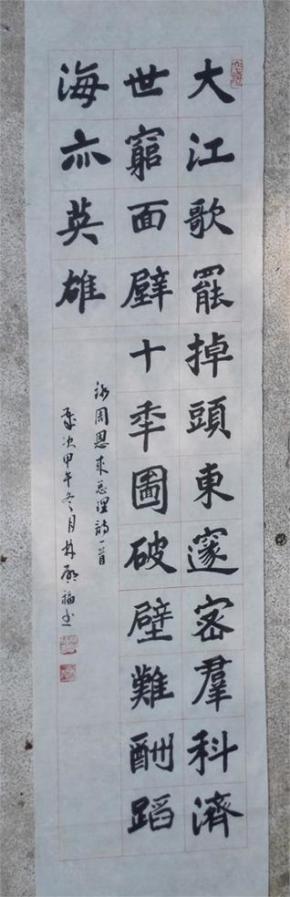 大江歌罷掉頭東邃宻羣科濟
世窮面壁十秊圖破壁難酬蹈
海亦英雄
录周恩來总理詩一首
歲次甲午冬月林福书